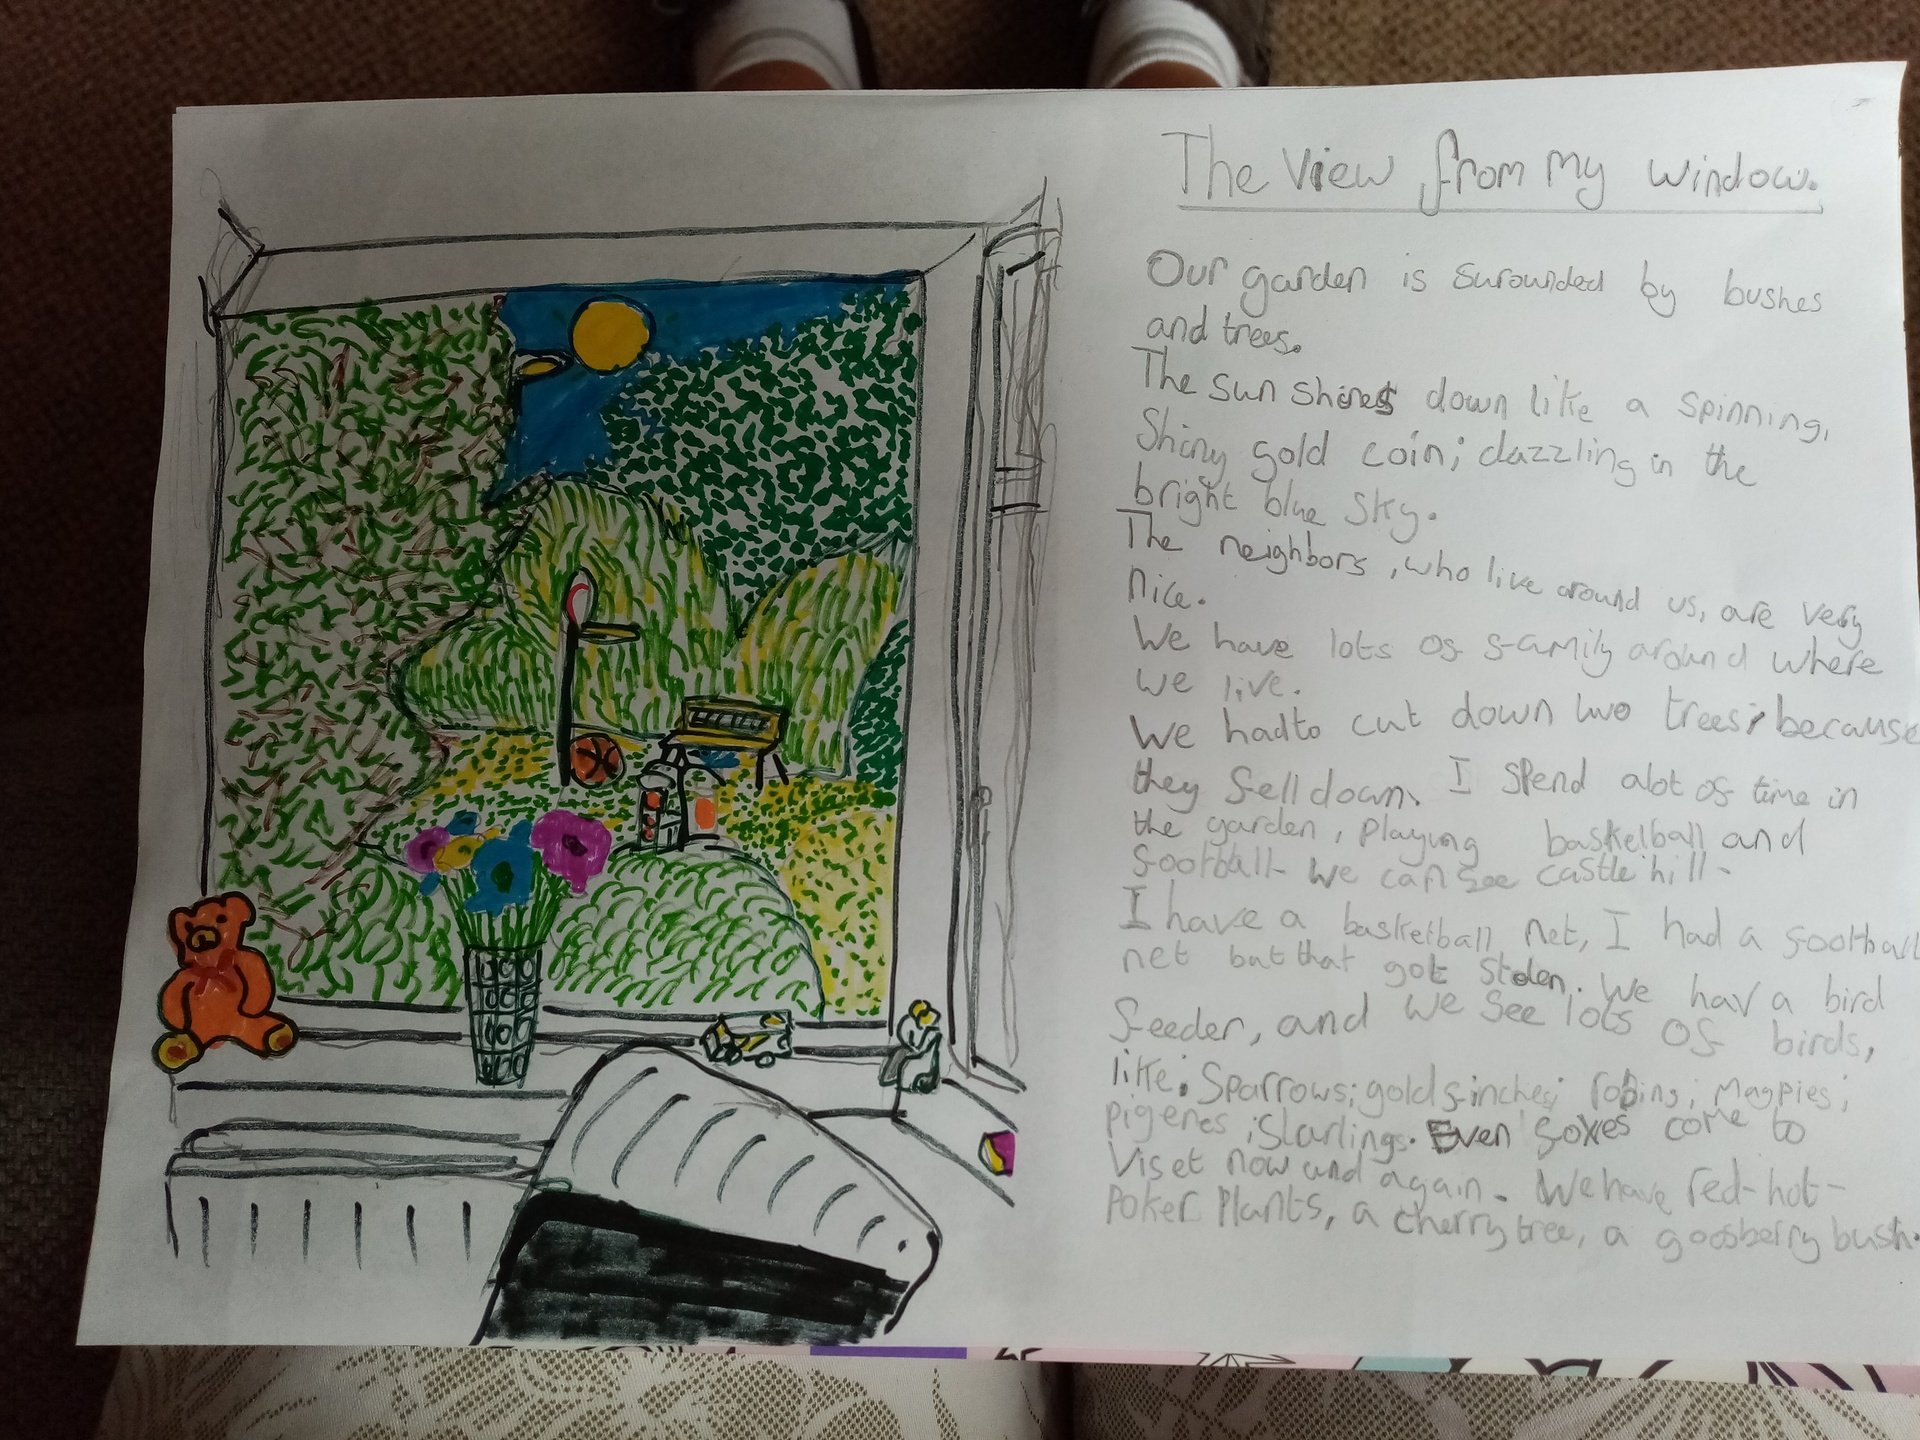 The View from my window.
Our garden is surounded by bushes
and trees.
The sun shines down like a spinning,
shiny gold coin; dazzling in the
bright blue sky.
The neighbors, who live around us, are very
nice.
We have lots of family around where
we live.
We had to cut down two trees; because
they fell down. I spend alot of time in
the garden, playing basketball and
football. We can see castle hill.
I have a basketball net, I had a football
net but that got stolen. We hav a bird
feeder, and we see lots of birds,
like. Sparrows; goldfinches; robins; Magpies;
pigenes; Starlings. Even foxes come to
viset now and again. We have red-hot-
poker plants, a cherry tree, a goosberry bush.